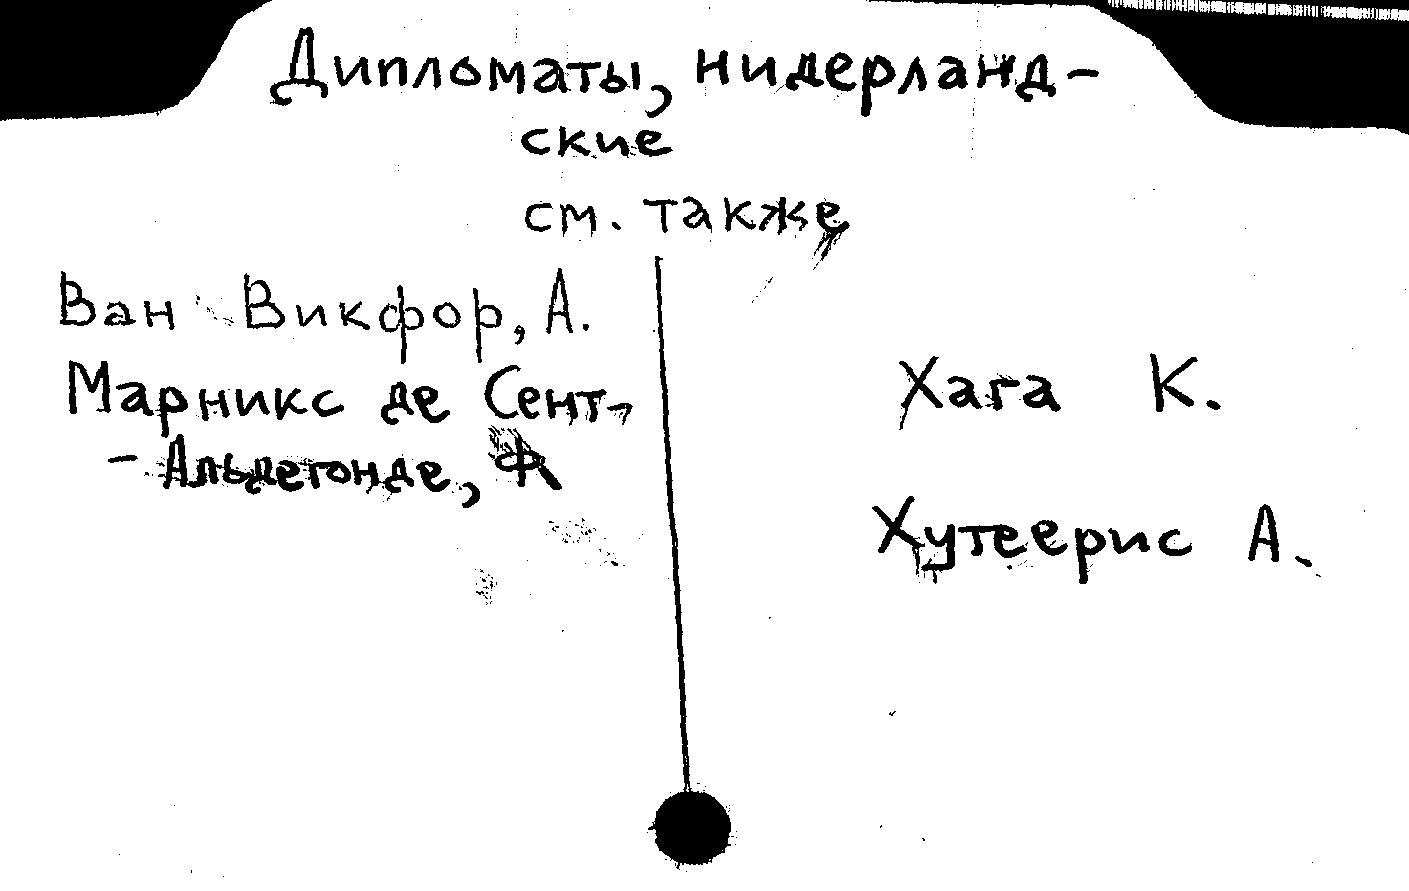 Дипломаты, нидерланд-
ские
см. также
Ван Викфор, А.
Марникс де Сент-
- Альдегонде, Ф
Хага К.
Хутеерис А.